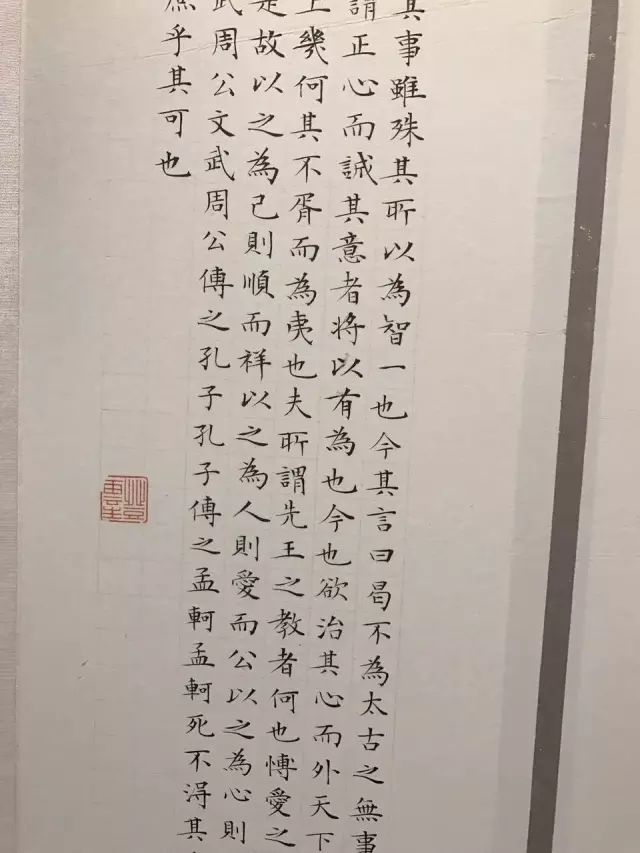 其事雖殊其所以為智一也今其言曰曷不為太古之無事
謂正心而誠其意者将以有為也今也欲治其心而外天下
上幾何其不胥而為夷也夫所謂先王之教者何也愽愛之
是故以之為己則順而祥以之為人則愛而公以之為心則
武周公文武周公傳之孔子孔子傳之孟軻孟軻死不淂其
庶乎其可也